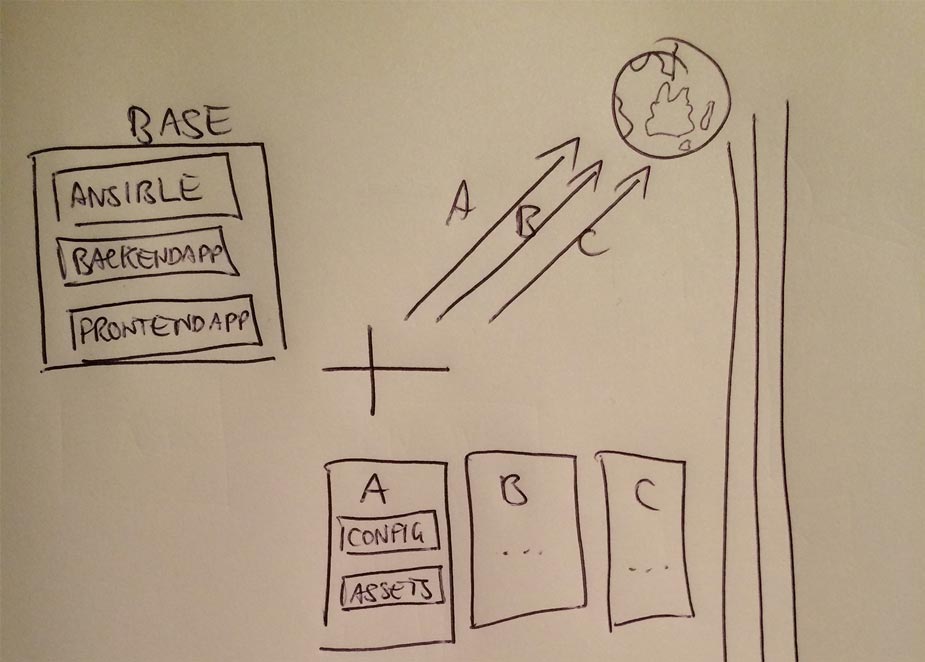 BASE
ANSIBLE
BACKENDAPP
FRONTENDAPP
A
B
C
A
CONFIG
ASSETS
B
...
C
...